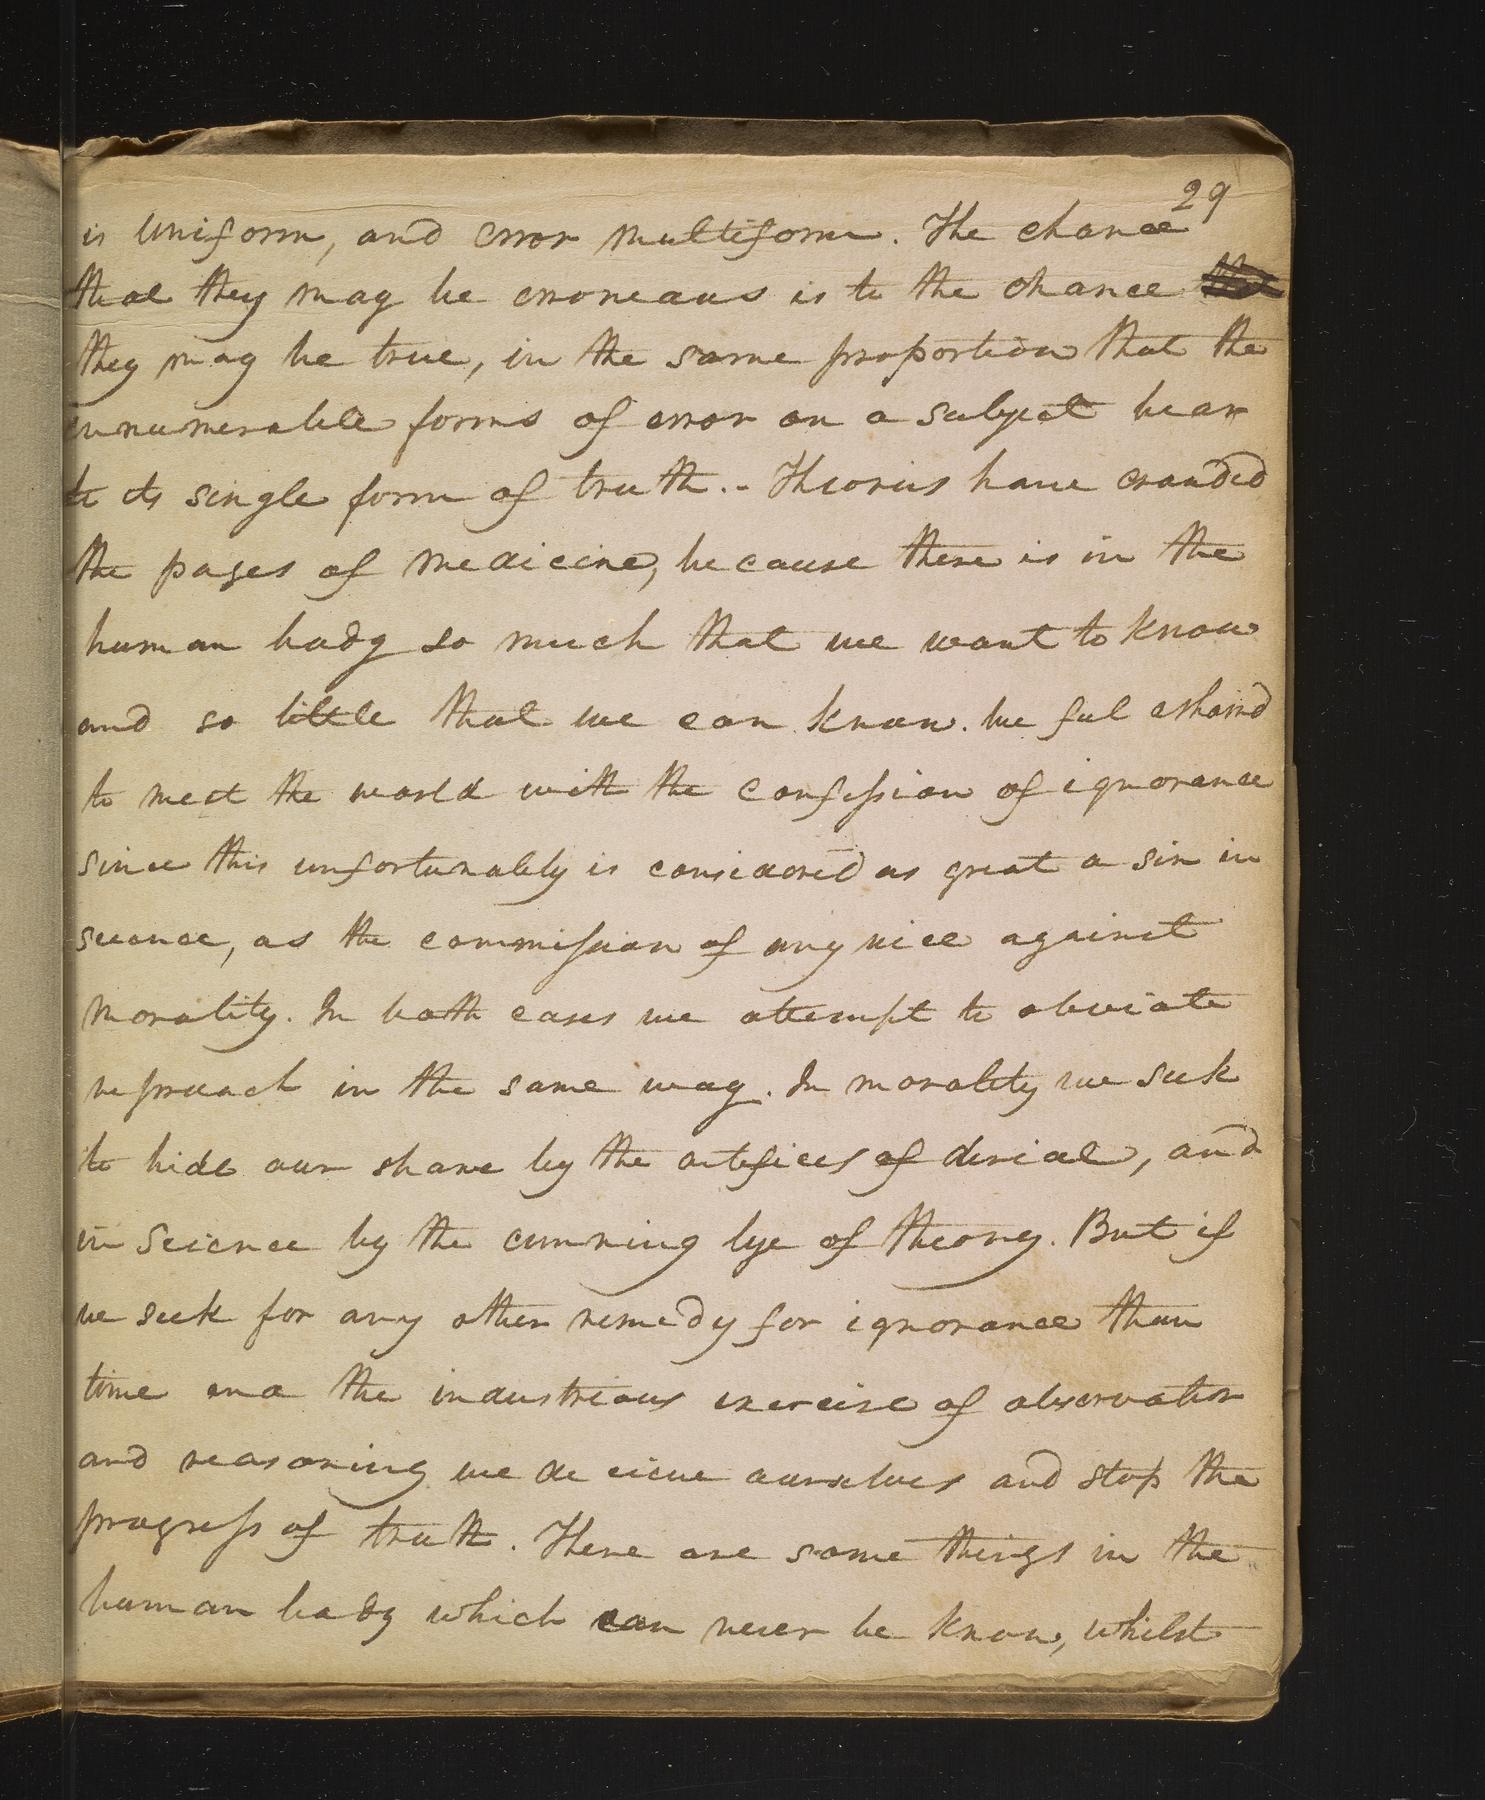 29
is Uniform, and error multiform. The chance
that they may be erroneous is to the chance
they may be true, in the same proportion that the
innumerable forms of error on a subject bear
to its single form of truth.- Theories have crouded
the pages of medicine, because there is in the
human body so much that we want to know
and so little that we can know. We feel asham'd
to meet the world with the confession of ignorance
since this unfortunately is considered as great a sin in
science, as the commission of any vice against
morality. In both cases we attempt to obviate
reproach in the same way. In morality we seek
to hide our shame by the artifices of denial, and
in Science by the cunning lye of theory. But if
we seek for any other remedy for ignorance than
time and the industrious exercise of observation
and reasoning we deceive ourselves and stop the
progress of truth. There are some things in the
human body which can never be known, whilst